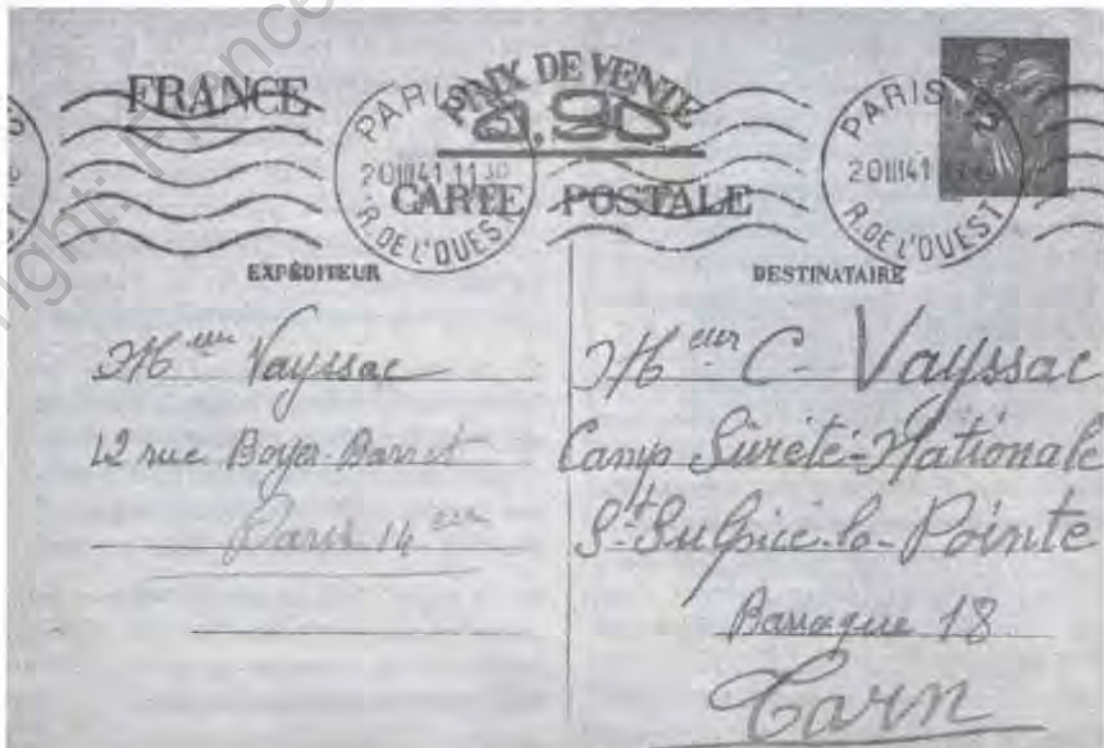 FRANCE
PRIX DE VENTE
0.90
CARTE POSTALE
PARIS
20III41 11 30
R. DE L'OUEST
PARIS
20III41
R. DE L'OUEST
EXPÉDITEUR
Vayssac
12 rue Boyer-Barret
Paris 14
DESTINATAIRE
Meur C. Vayssac
Camp Sûreté-Nationale
St Sulpice-la-Pointe
Baraque 18
Tarn